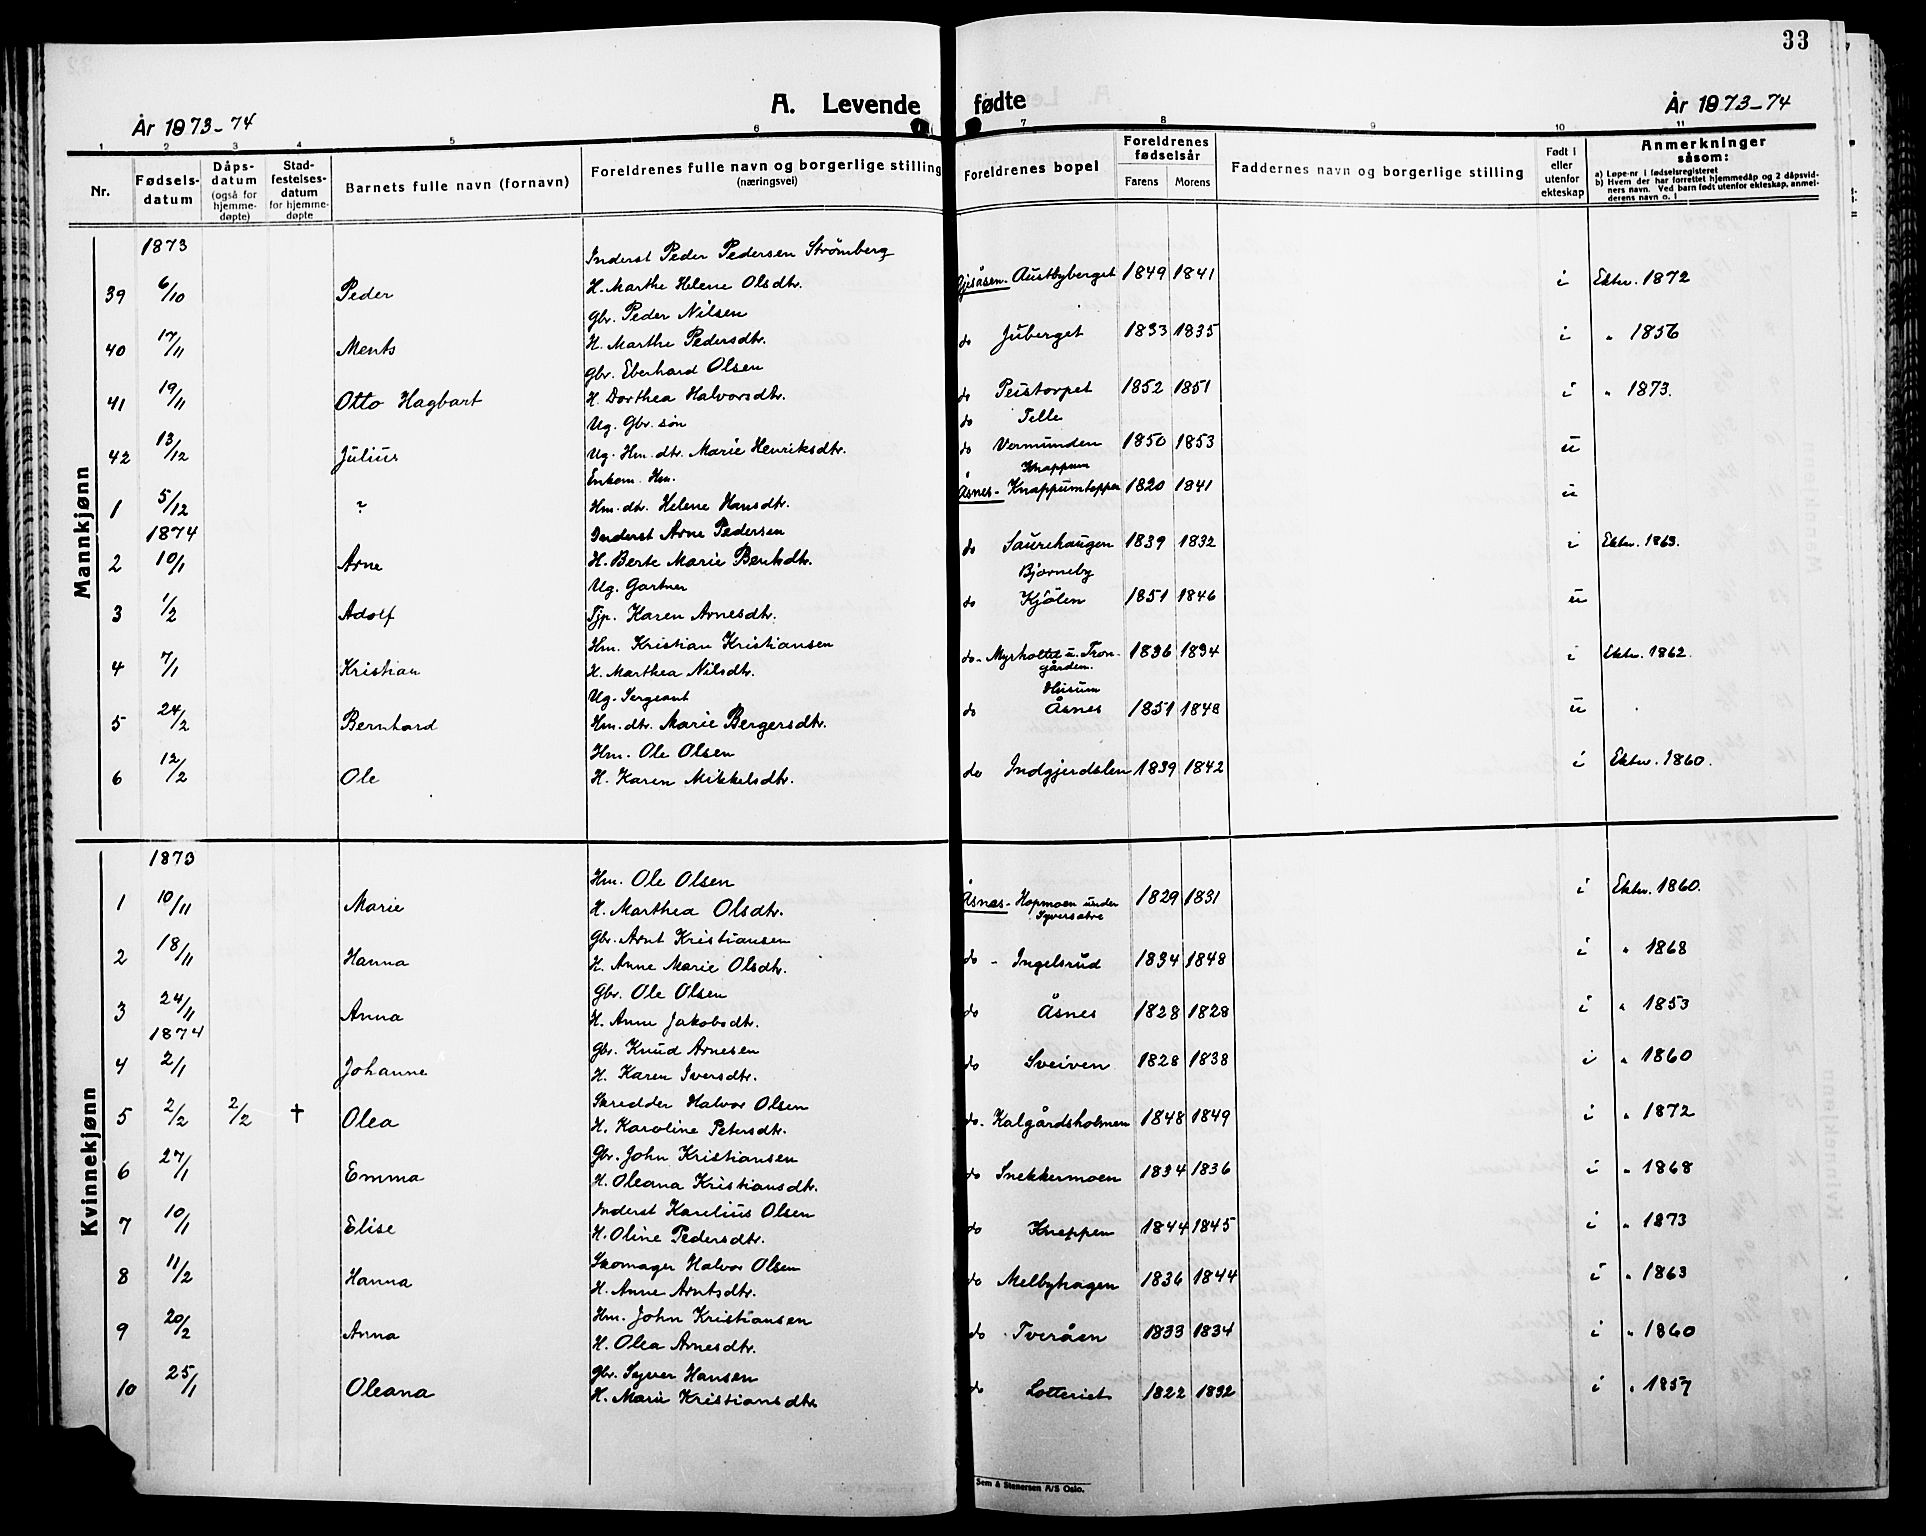 33
År 1873-74
A. Levende fødte
År 1873-74
1 2 3 4 5 6 7 8 9 10 11
Nr. Fødselsdatum Dåpsdatum (også for hjemmedøpte) Stadfestelsesdatum for hjemmedøpte Barnets fulle navn (fornavn) Foreldrenes fulle navn og borgerlige stilling (næringsvei) Foreldrenes bopel Foreldrenes fødselsår Farens Morens Faddernes navn og borgerlige stilling Født i eller utenfor ekteskap Anmerkninger såsom:
a) Løpe-nr i fødselsregisteret
b) Hvem der har forrettet hjemmedåp og 2 dåpsvidners navn. Ved barn født utenfor ekteskap, anmelderens navn o. l
Mannkjønn
1873
Inderst Peder Pedersen Strömberg
39 6/10 Peder H. Marthe Helene Olsdtr. Gjesåsen. Austbyberget 1849 1841 i Ektv. 1872
Gbr. Peder Nilsen
40 17/11 Ments H. Marthe Pedersdtr. do Juberget 1833 1835 i " 1856
Gbr. Eberhard Olsen
41 19/11 Otto Hagbart H. Dorthea Halvorsdtr. do Peistorpet 1852 1851 i " 1873.
Ug. Gbr. søn do Telle
42 13/12 Julius Ug. Hm. dtr. Marie Henriksdtr. do Vermunden 1850 1853 u
Enkem. Hm. Knappum
1 5/12 ? Hm. dtr. Helene Hansdtr. Åsnes- Knappumtoppen 1820 1841 u
1874
Inderst Arne Pedersen
2 10/1 Arne H. Berte Marie Berntdtr. do Saurehaugen 1839 1832 i Ektv. 1863.
Ug. Gartner Bjørneby
3 1/2 Adolf Tjp. Karen Arnesdtr. do Kjölen 1851 1846 u
Hm. Kristian Kristiansen
4 7/1 Kristian H. Marthea Nilsdtr. do- Myrholtet u. Trongården. 1836 1834 i Ektv. 1862.
Ug. Sergeant Husum
5 24/2 Bernhard Hm. dtr. Marie Bergersdtr. do Åsnes 1851 1848 u
Hm. Ole Olsen
6 12/2 Ole H. Karen Mikkelsdtr. do Indgjerdslen 1839 1842 i Ektv. 1860.
Kvinnekjønn
1873
Hm. Ole Olsen
1 10/11 Marie H. Marthea Olsdtr. Åsnes- Hopmoen under Syversætre 1829 1831 i Ektv. 1860.
Gbr. Arnt Kristiansen
2 18/11 Hanna H. Anne Marie Olsdtr. do - Ingelsrud 1834 1848 i " 1868
Gbr. Ole Olsen
3 24/11 Anna H. Anne Jakobsdtr. do Åsnes 1828 1828 i " 1853
1874
Gbr. Knud Arnesen
4 2/1 Johanne H. Karen Iversdtr. do Sveiven 1828 1838 i " 1860
Skredder Halvor Olsen
5 2/2 2/2 † Olea H. Karoline Petersdtr. do- Kalgårdsholmen 1848 1849 i " 1872
Gbr. John Kristiansen
6 27/1 Emma H. Oleana Kristiansdtr. do Snekkermoen 1834 1836 i " 1868
Inderst Karelius Olsen
7 10/1 Elise H. Oline Pedersdtr. do Kneppen 1844 1845 i " 1873
Skomager Halvor Olsen
8 11/2 Hanna H. Anne Arntsdtr. do Melbyhagen 1836 1844 i " 1863
Hm. John Kristiansen
9 20/2 Anna H. Olea Arnesdtr. do Tveråen 1833 1834 i " 1860
Gbr. Syver Hansen
10 25/1 Oleana H. Marie Kristiansdtr do Lotteriet 1822 1832 i " 1857
Sem & Stenersen A/S Oslo.